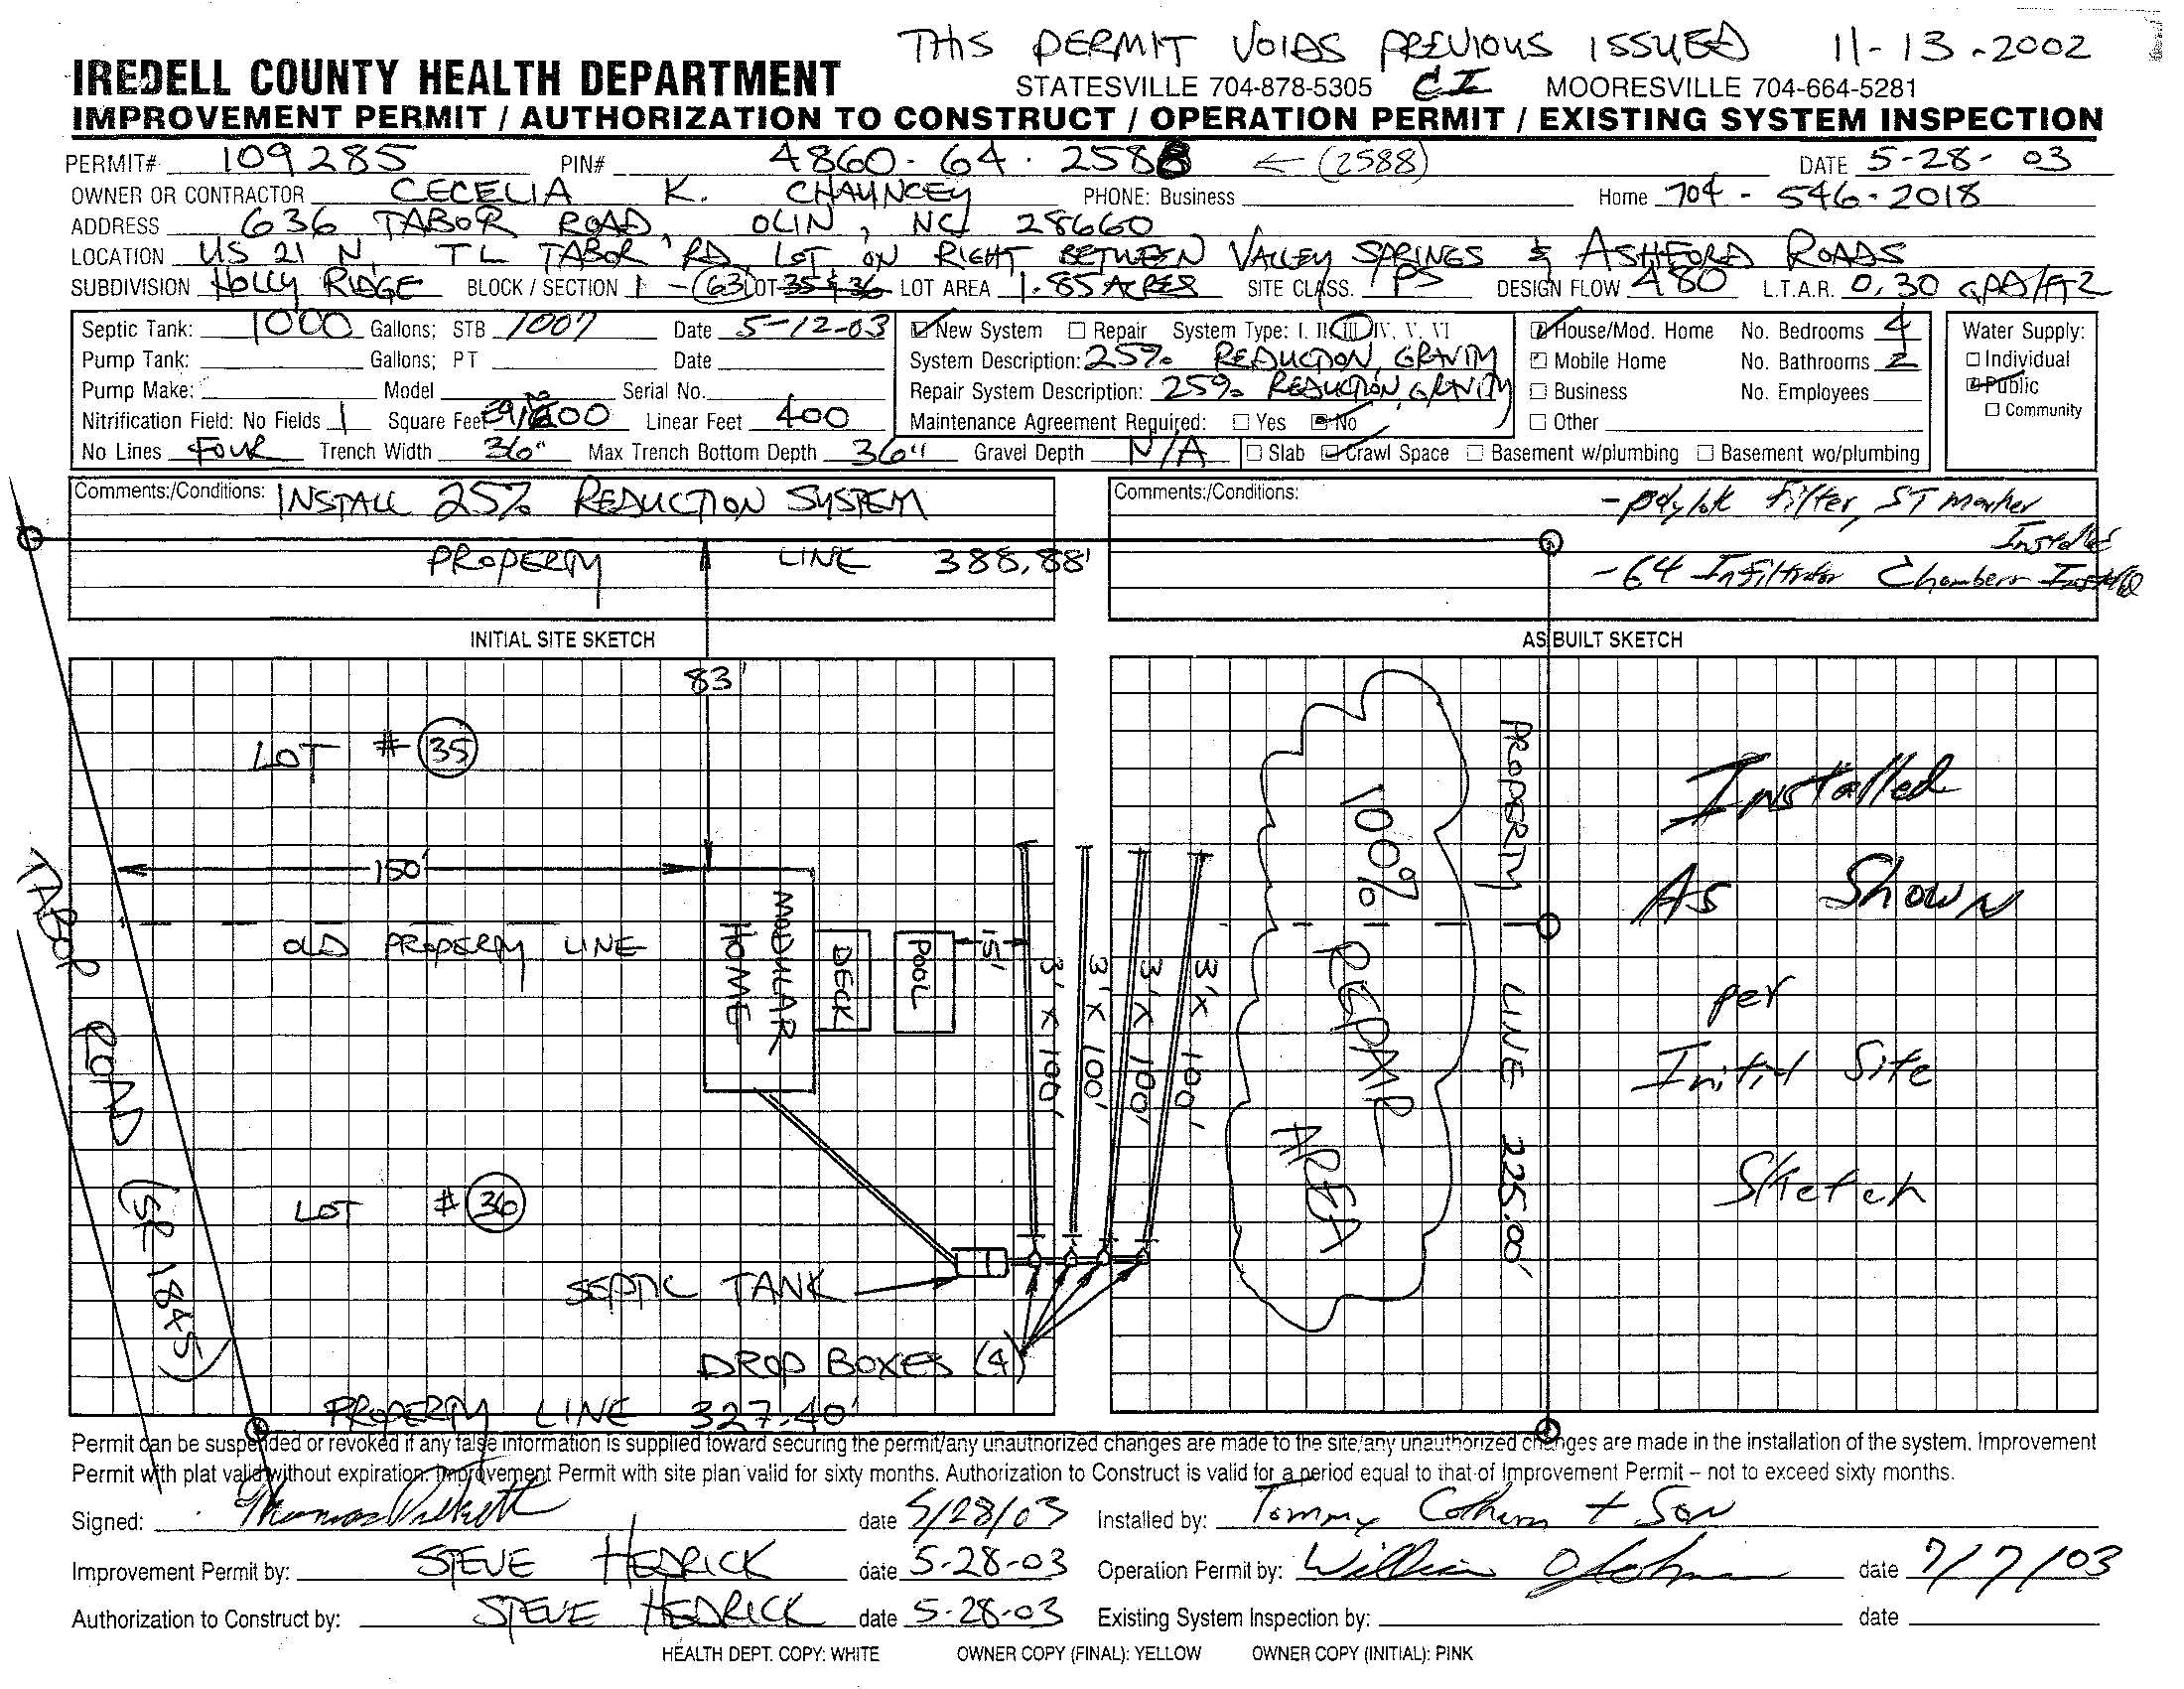 THIS PERMIT VOIDS PREVIOUS ISSUED 11-13-2002
IREDELL COUNTY HEALTH DEPARTMENT
STATESVILLE 704-878-5305 MOORESVILLE 704-664-5281
IMPROVEMENT PERMIT / AUTHORIZATION TO CONSTRUCT / OPERATION PERMIT / EXISTING SYSTEM INSPECTION
PERMIT# 109285 PIN# 4860-64-2588 ← (2588) DATE 5-28-03
OWNER OR CONTRACTOR CECELIA K. CHAUNCEY PHONE: Business Home 704-546-2018
ADDRESS 636 TABOR ROAD, OLIN, NC 28660
LOCATION US 21 N, TL TABOR RD, LOT ON RIGHT BETWEEN VALLEY SPRINGS & ASHFORD ROADS
SUBDIVISION HOLLY RIDGE BLOCK / SECTION 1 - 63 LOT 35 & 36 LOT AREA 1.85 ACRES SITE CLASS. PS DESIGN FLOW 480 L.T.A.R. 0.30 GPD/FT2
Septic Tank: 1000 Gallons; STB 1007 Date 5-12-03
Pump Tank: Gallons; PT Date
Pump Make: Model Serial No.
Nitrification Field: No Fields 1 Square Feet Linear Feet 400
No Lines FOUR Trench Width 36" Max Trench Bottom Depth 36" Gravel Depth N/A
New System Repair System Type: I. II. III. IV. V. VI
System Description: 25% REDUCTION, GRAVITY
Repair System Description: 25% REDUCTION, GRAVITY
Maintenance Agreement Required: Yes No
Slab Crawl Space Basement w/plumbing Basement wo/plumbing
House/Mod. Home No. Bedrooms 4
Mobile Home No. Bathrooms 2
Business No. Employees
Other
Water Supply:
Individual
Public
Community
Comments:/Conditions: INSTALL 25% REDUCTION SYSTEM
PROPERTY LINE 388.88'
Comments:/Conditions: - polylok filter, ST marker
Installed
- 64 Infiltrator Chambers Installed
INITIAL SITE SKETCH
AS BUILT SKETCH
83'
LOT # 35
150'
OLD PROPERTY LINE
MODULAR
HOME
DECK
POOL
15'
3' X 100'
3' X 100'
3' X 100'
3' X 100'
100% REPAIR
AREA
PROPERTY LINE 225.00'
TABOR ROAD (SR 1845)
LOT # 36
SEPTIC TANK
DROP BOXES (4)
PROPERTY LINE 327.40'
Installed
As Shown
per
Initial Site
Sketch
Permit can be suspended or revoked if any false information is supplied toward securing the permit/any unauthorized changes are made to the site/any unauthorized changes are made in the installation of the system. Improvement
Permit with plat valid without expiration. Improvement Permit with site plan valid for sixty months. Authorization to Construct is valid for a period equal to that of Improvement Permit – not to exceed sixty months.
Signed: date 5/28/03 Installed by: Tommy + Son
Improvement Permit by: STEVE HEDRICK date 5-28-03 Operation Permit by: William date 7/7/03
Authorization to Construct by: STEVE HEDRICK date 5-28-03 Existing System Inspection by: date
HEALTH DEPT. COPY: WHITE OWNER COPY (FINAL): YELLOW OWNER COPY (INITIAL): PINK